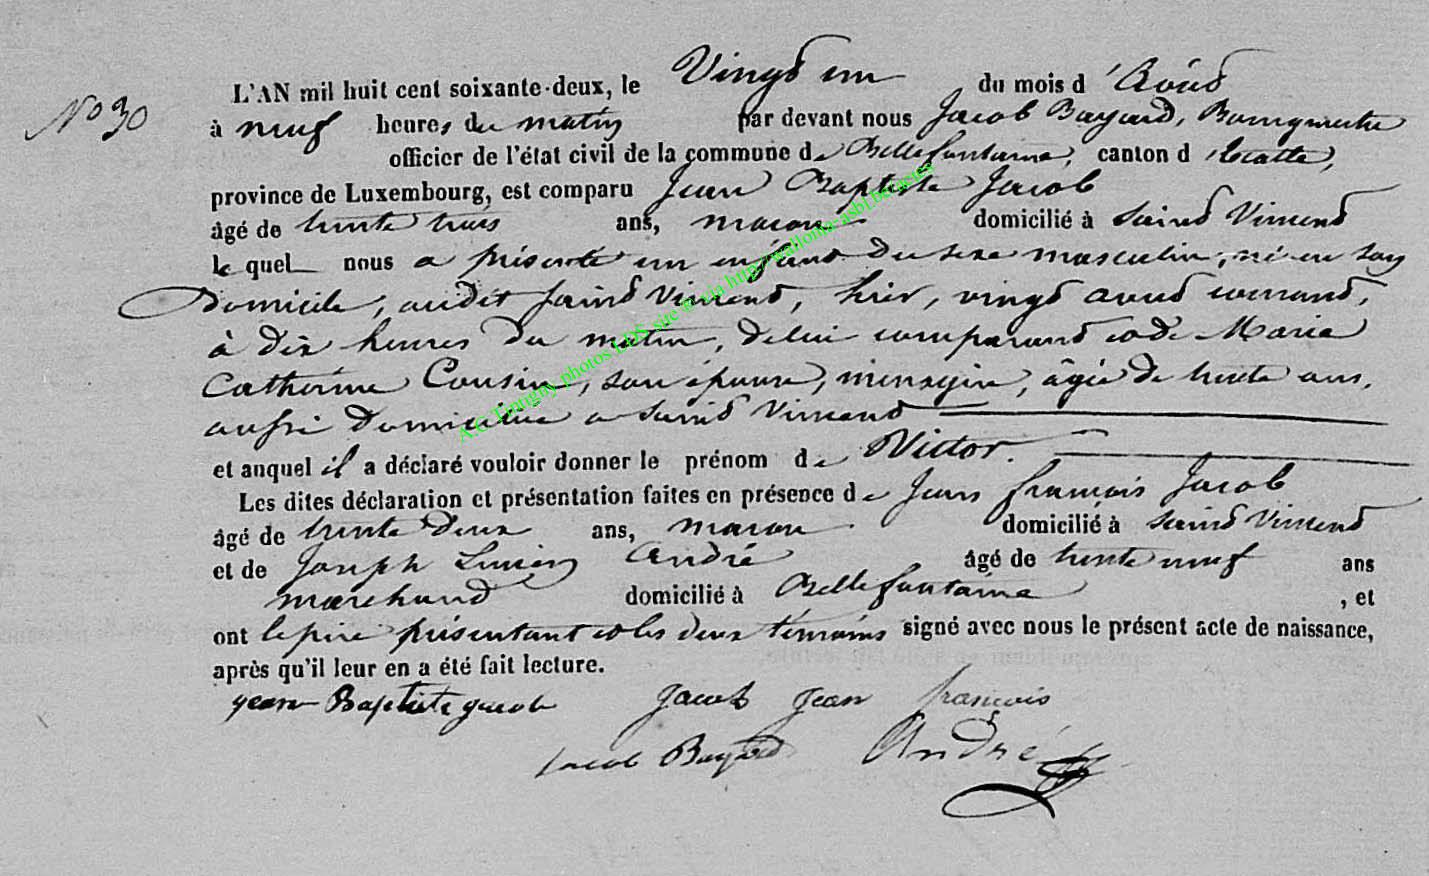 L'AN mil huit cent soixante-deux, le Vingt un du mois d'Août
No 30
à neuf heures du matin par devant nous Jacob Bayard, Bourgmestre
officier de l'état civil de la commune de Bellefontaine, canton d'Etalle,
province de Luxembourg, est comparu Jean Baptiste Jacob
âgé de trente trois ans, maçon domicilié à Saint Vincent
lequel nous a présenté un enfant du sexe masculin, né en son
Domicile, audit Saint Vincent, hier, vingt août courant,
à dix heures du matin, de lui comparant et de Marie
Catherine Cousin, son épouse, ménagère, âgée de trente ans,
aussi Domiciliée à Saint Vincent
et auquel il a déclaré vouloir donner le prénom de Victor.
Les dites déclaration et présentation faites en présence de Jean françois Jacob
âgé de trente Deux ans, maçon domicilié à Saint Vincent
et de Joseph Lucien André âgé de trente neuf ans
marchand domicilié à Bellefontaine, et
ont le père présentant et les deux témoins signé avec nous le présent acte de naissance,
après qu'il leur en a été fait lecture.
jean Baptiste jacob Jacob Jean françois
Jacob Bayard André
A.G Tintigny photos LDS site @ via http://wallonia-asbl.be/actes